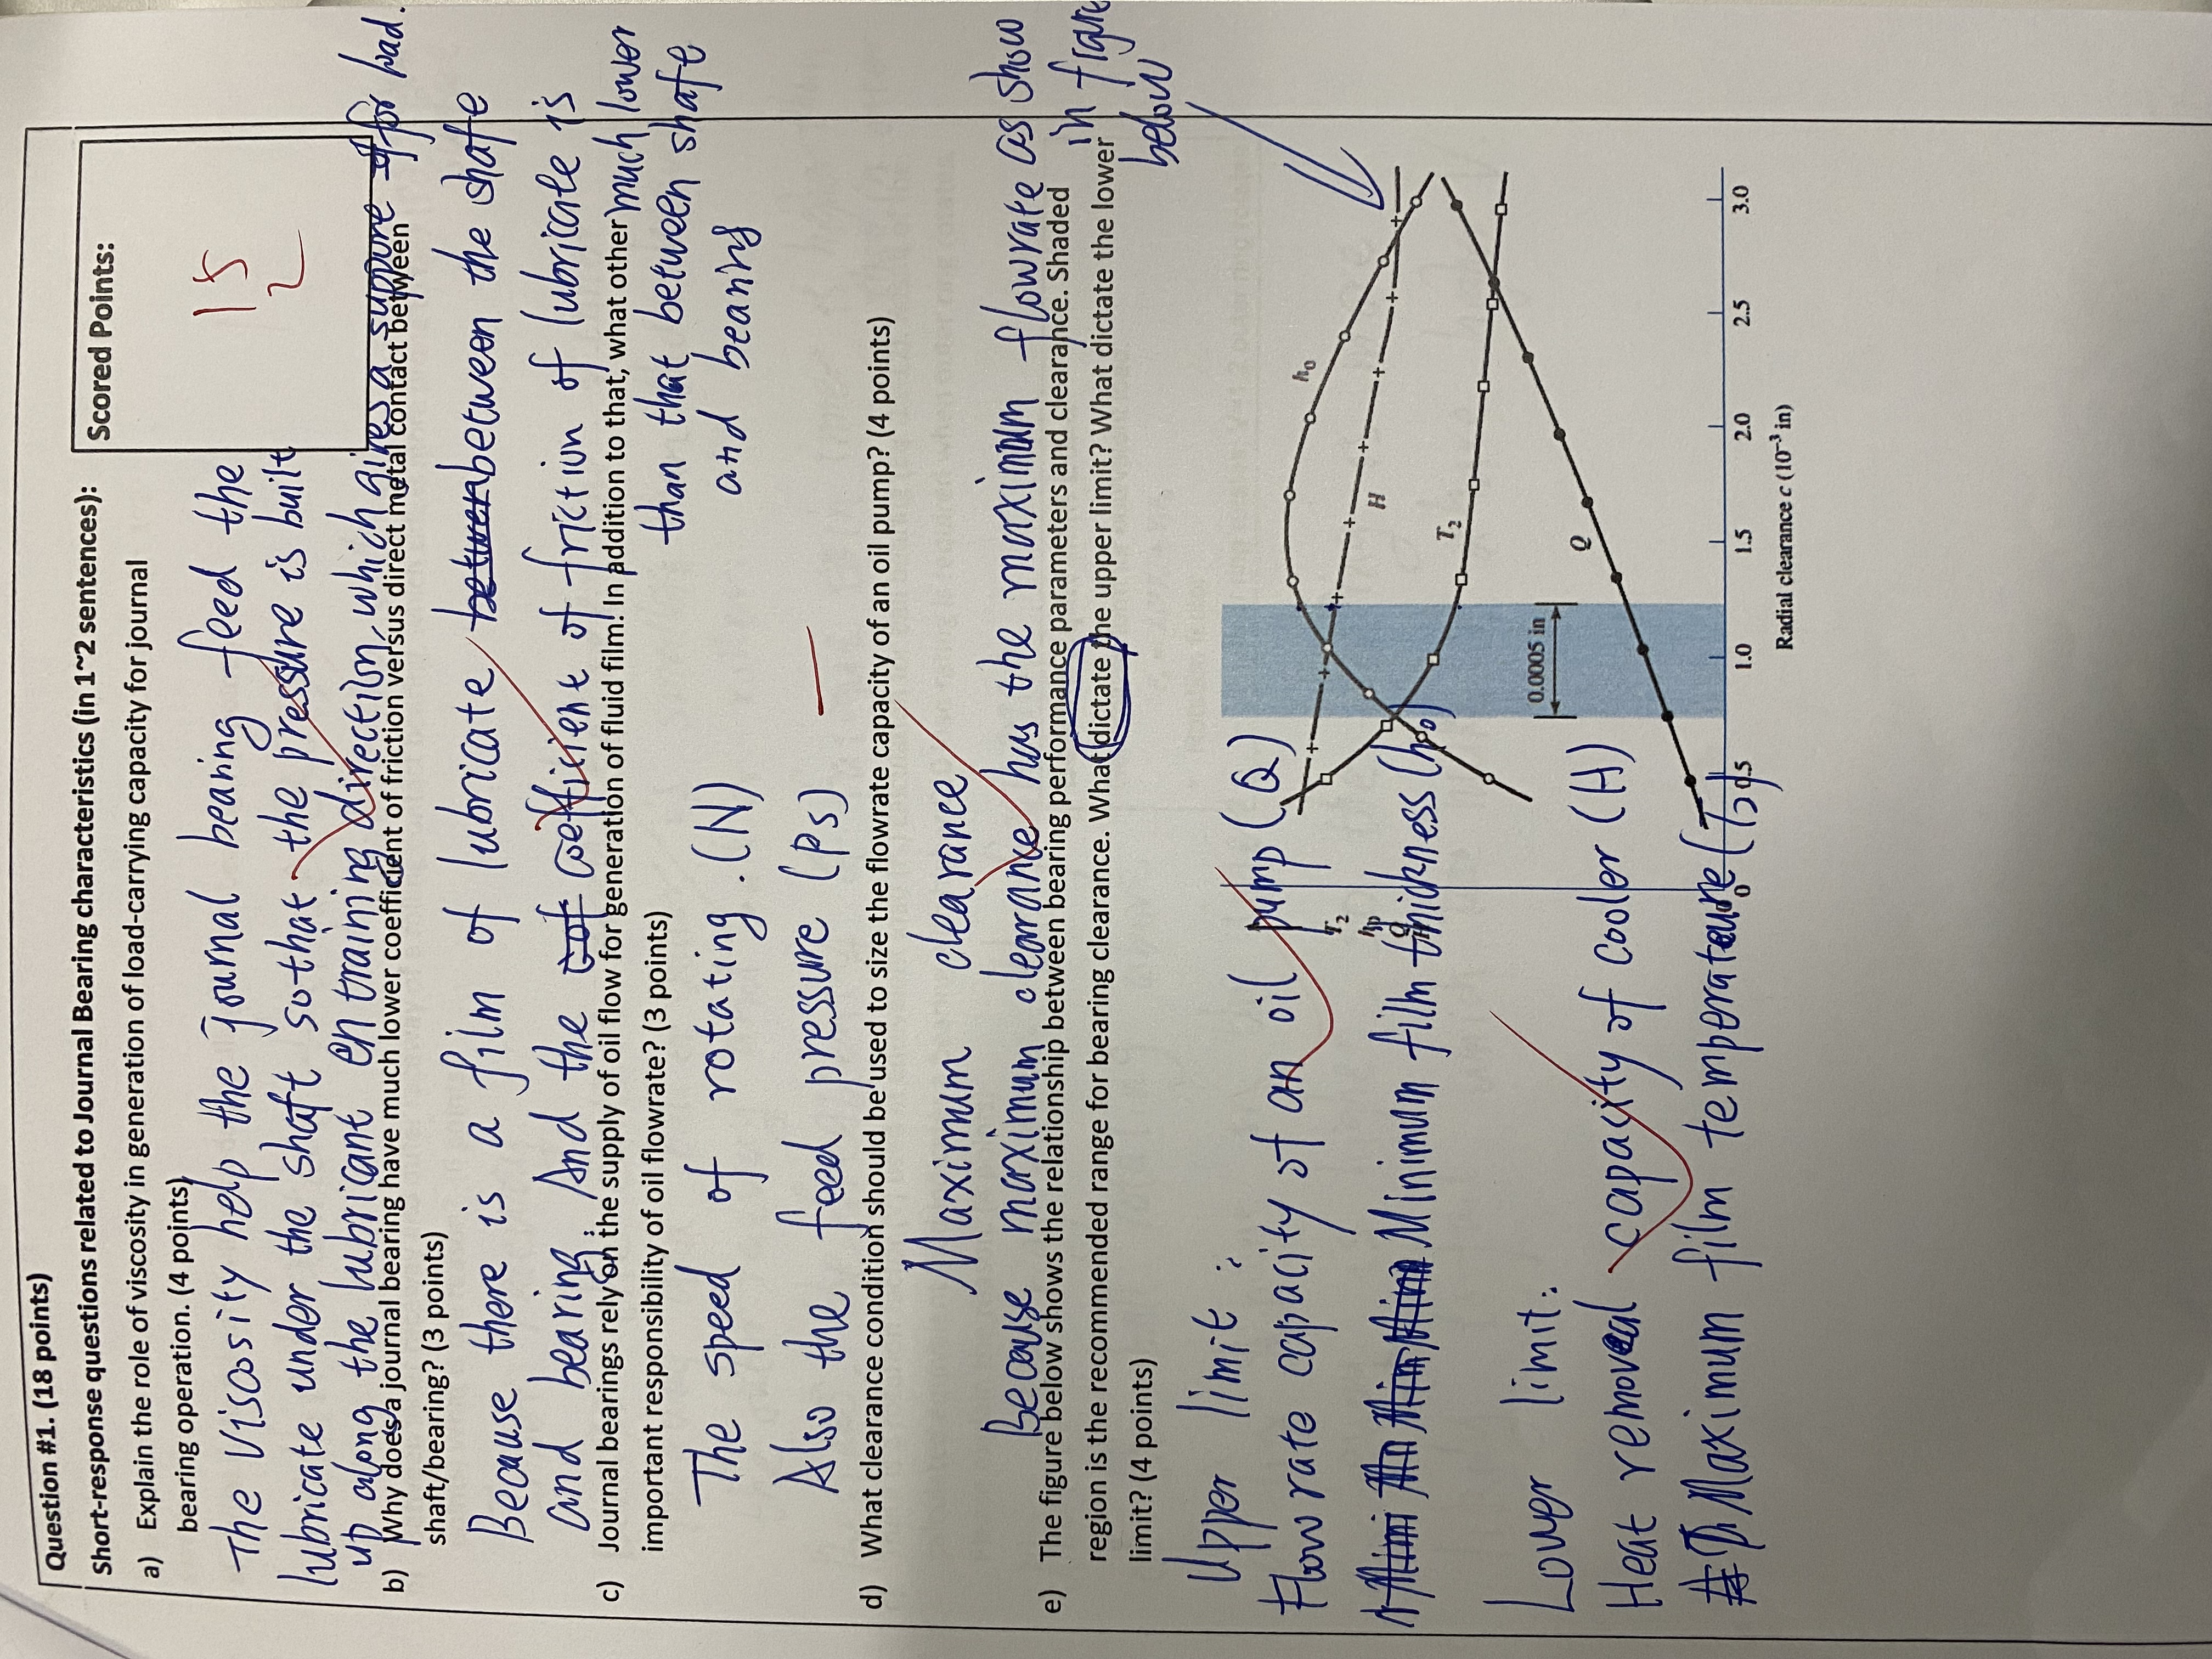 Question #1. (18 points)
Short-response questions related to Journal Bearing characteristics (in 1~2 sentences):
Scored Points:
15
2
a) Explain the role of viscosity in generation of load-carrying capacity for journal
bearing operation. (4 points)
The viscosity help the journal bearing feed the
lubricate under the shaft so that the pressure is built
up along the lubricant entraining direction, which gives a suppure for load.
b) Why does a journal bearing have much lower coefficient of friction versus direct metal contact between
shaft/bearing? (3 points)
Because there is a film of lubricate between the shafe
and bearing. And the coefficient of friction of lubricate is
much lower
than that between shafe
and bearing
c) Journal bearings rely on the supply of oil flow for generation of fluid film! In addition to that, what other
important responsibility of oil flowrate? (3 points)
The speed of rotating. (N)
Also the feed pressure (Ps)
d) What clearance condition should be used to size the flowrate capacity of an oil pump? (4 points)
Maximum clearance
Because maximum clearance has the maximum flowrate as show
in figure
below
e) The figure below shows the relationship between bearing performance parameters and clearance. Shaded
region is the recommended range for bearing clearance. What dictate the upper limit? What dictate the lower
limit? (4 points)
Upper limit:
Flow rate capacity of an oil pump (Q)
Minimum film thickness (h0)
Lower limit:
Heat removeal capacity of cooler (H)
Maximum film temperateure (T2)
T2
h0
H
T2
0.0005 in
Q
0
0 0.5 1.0 1.5 2.0 2.5 3.0
Radial clearance c (10⁻³ in)